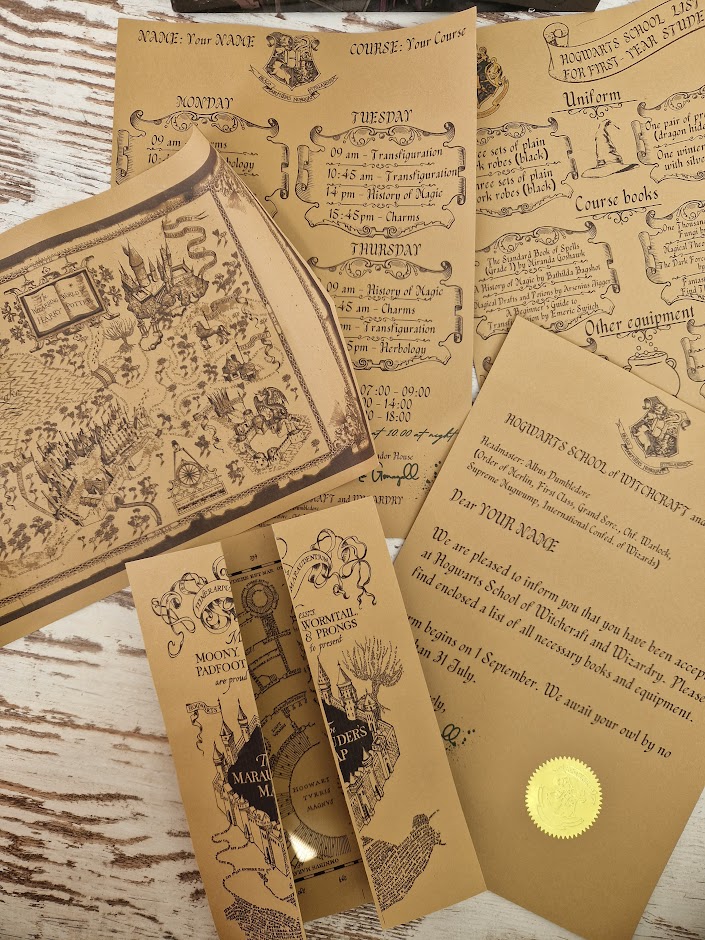 NAME: Your NAME
COURSE: Your Course
MONDAY
09 am
10:4
TUESDAY
09 am - Transfiguration
10:45 am - Transfiguration
14 pm - History of Magic
15:45pm - Charms
THURSDAY
09 am - History of Magic
45 am - Charms
pm - Transfiguration
5pm - Herbology
07:00 - 09:00
- 14:00
- 18:00
at 10.00 at night
HOGWARTS SCHOOL LIST
FOR FIRST-YEAR STUDE
Uniform
ree sets of plain
rk robes (black)
ree sets of plain
rk robes (black)
One pair of pr
(dragon hide
One winter
with silver
Course books
The Standard Book of Spells
(Grade 1) by Miranda Goshawk
A History of Magic by Bathilda Bagshot
Magical Drafts and Potions by Arsenius Jigger
A Beginner's Guide to
Transfiguration by Emeric Switch
One Thousand
Magical Theo
The Dark Force
Fantas
Find Th
Other equipment
WIZARDING WORLD
HARRY POTTER
HOGWARTS SCHOOL of WITCHCRAFT and
Headmaster: Albus Dumbledore
(Order of Merlin, First Class, Grand Sorc., Chf. Warlock,
Supreme Mugwump, International Confed. of Wizards)
Dear YOUR NAME
We are pleased to inform you that you have been accep
at Hogwarts School of Witchcraft and Wizardry. Please
find enclosed a list of all necessary books and equipment.
rm begins on 1 September. We await your owl by no
an 31 July.
rely,
MOONY
PADFOOT
are proud
WORMTAIL,
& PRONGS
to present
HOGWARTS
MARAU
M
DER'S
AP
HOGWART
TVRRIS
MAGNVS